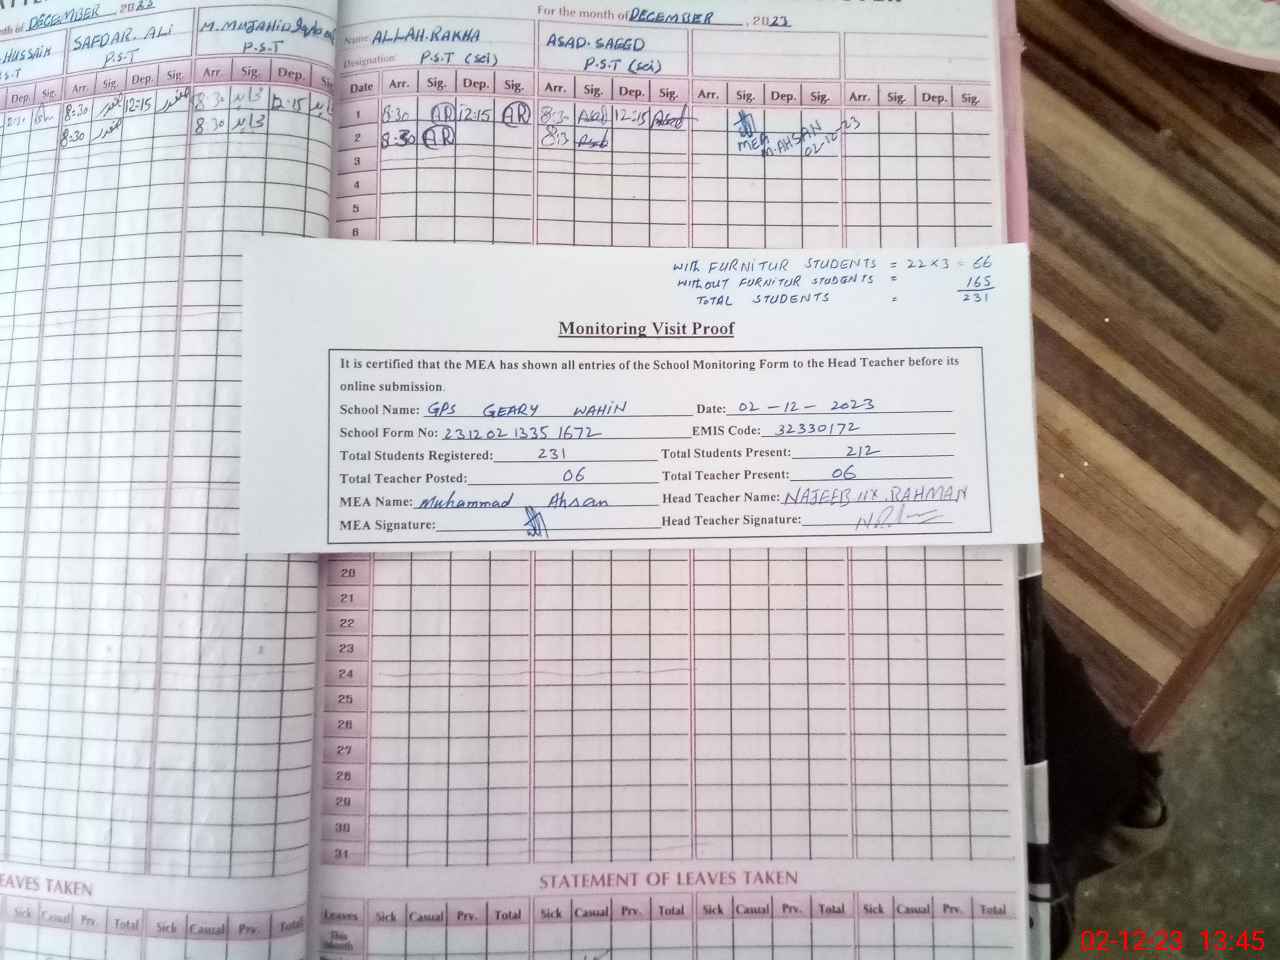 DECEMBER, 2023
HUSSAIN
SAFDAR. ALI
P.S.T
P.S.T
Dep. Sig. Arr. Sig. Dep. Sig. Arr. Sig. Dep.
8:30 12:15 8:30 12:15
8:30 8:30
For the month of DECEMBER, 2023
Name: ALLAH.RAKHA ASAD.SAEED
Designation: P.S.T (sci) P.S.T (sci)
Date Arr. Sig. Dep. Sig. Arr. Sig. Dep. Sig. Arr. Sig. Dep. Sig. Arr. Sig. Dep. Sig.
1 8:30 AR 12:15 AR 8:30 Asad 12:15 Asad
2 8:30 AR 8:3 Asad
MEA
M.AHSAN
02-12-23
3
4
5
6
WITH FURNITUR STUDENTS = 22×3 = 66
WITHOUT FURNITUR STUDENTS = 165
TOTAL STUDENTS = 231
Monitoring Visit Proof
It is certified that the MEA has shown all entries of the School Monitoring Form to the Head Teacher before its
online submission.
School Name: GPS GEARY WAHIN Date: 02-12-2023
School Form No: 231202 1335 1672 EMIS Code: 32330172
Total Students Registered: 231 Total Students Present: 212
Total Teacher Posted: 06 Total Teacher Present: 06
MEA Name: Muhammad Ahsan Head Teacher Name: RAHMAN
MEA Signature: Head Teacher Signature:
20
21
22
23
24
25
26
27
28
29
30
31
LEAVES TAKEN
Sick Casual Prv. Total Sick Casual Prv. Total
STATEMENT OF LEAVES TAKEN
Leaves Sick Casual Prv. Total Sick Casual Prv. Total Sick Casual Prv. Total Sick Casual Prv. Total
This
Month
02-12-23 13:45